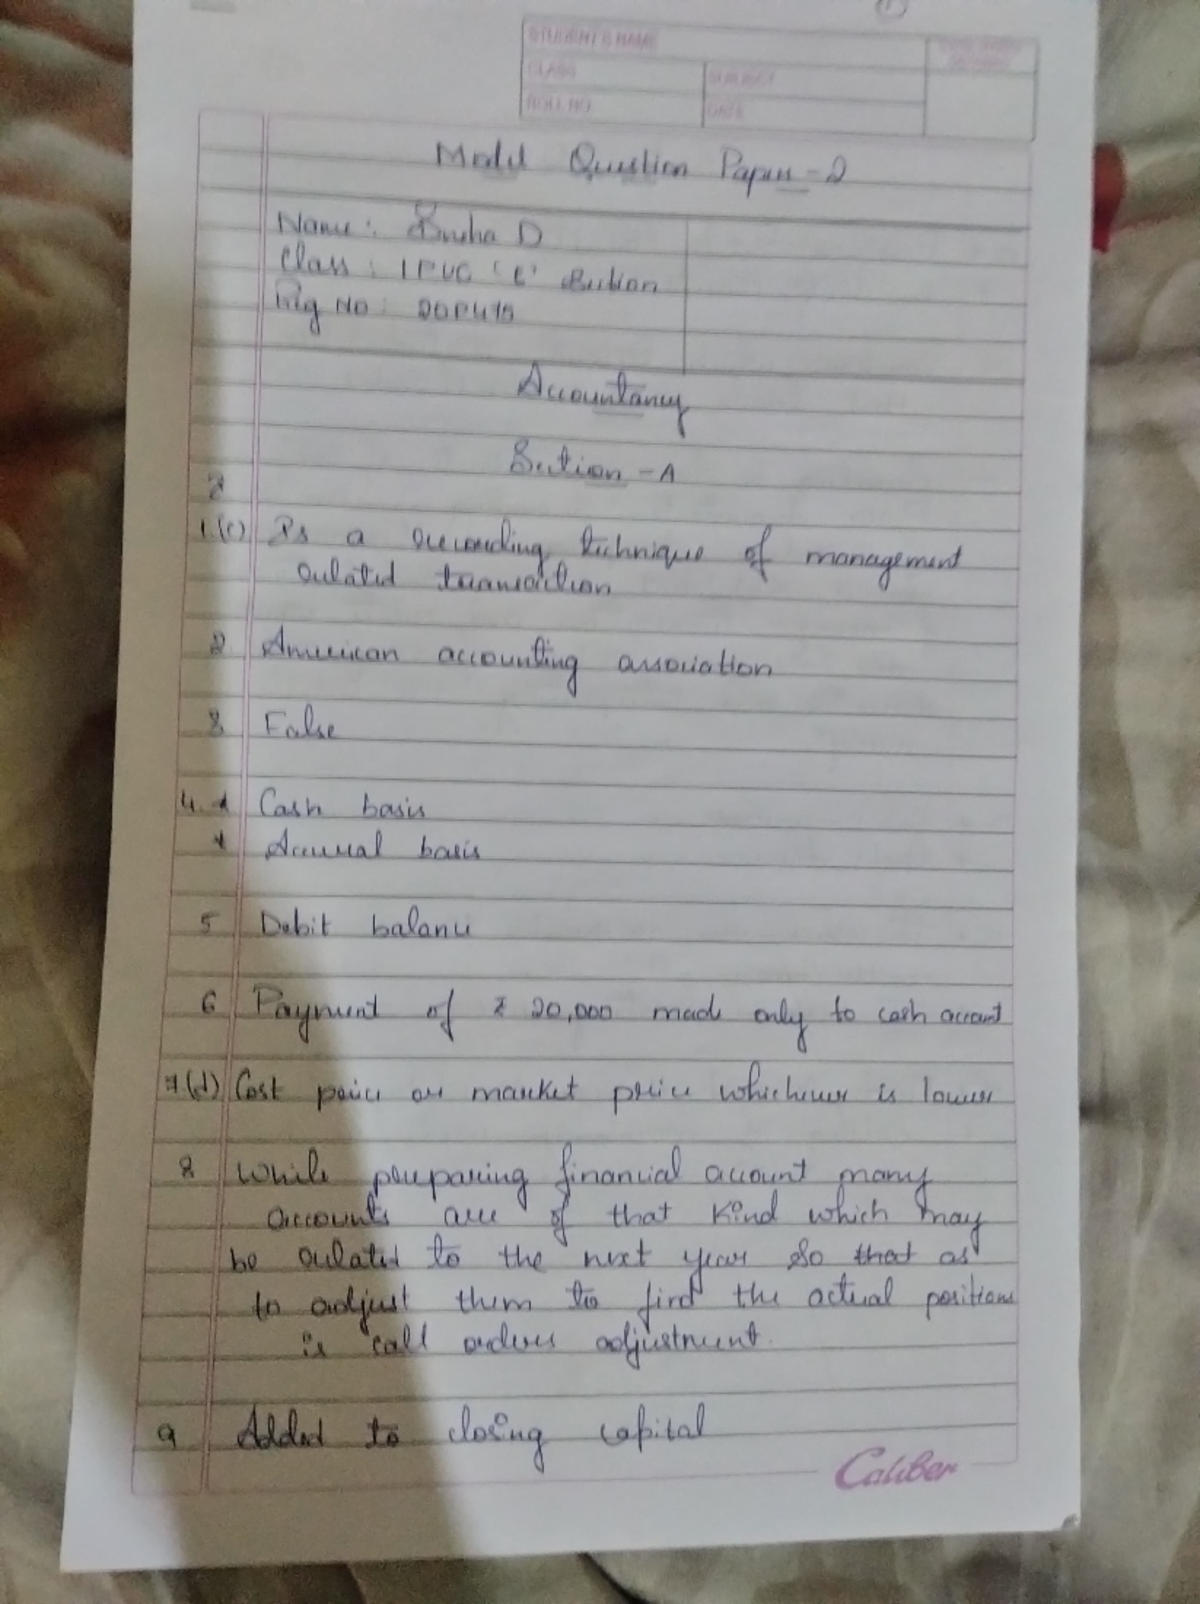 STUDENT'S NAME
CLASS
SUBJECT
ROLL NO.
DATE
Model Question Paper - 2
Name: D
Class: I PUC 'E' Section
Reg No:
Accountancy
Section - A
1.(c) Is a recording technique of management
related transaction
2 American accounting association
3 False
4. * Cash basis
* Accrual basis
5 Debit balance
6 Payment of ₹ 20,000 made only to cash account
7(d) Cost price or market price whichever is lower
8 While preparing financial account many
accounts are of that kind which may
be related to the next year so that as
to adjust them to find the actual positions
is call adjustment.
9 Added to closing capital
Caliber